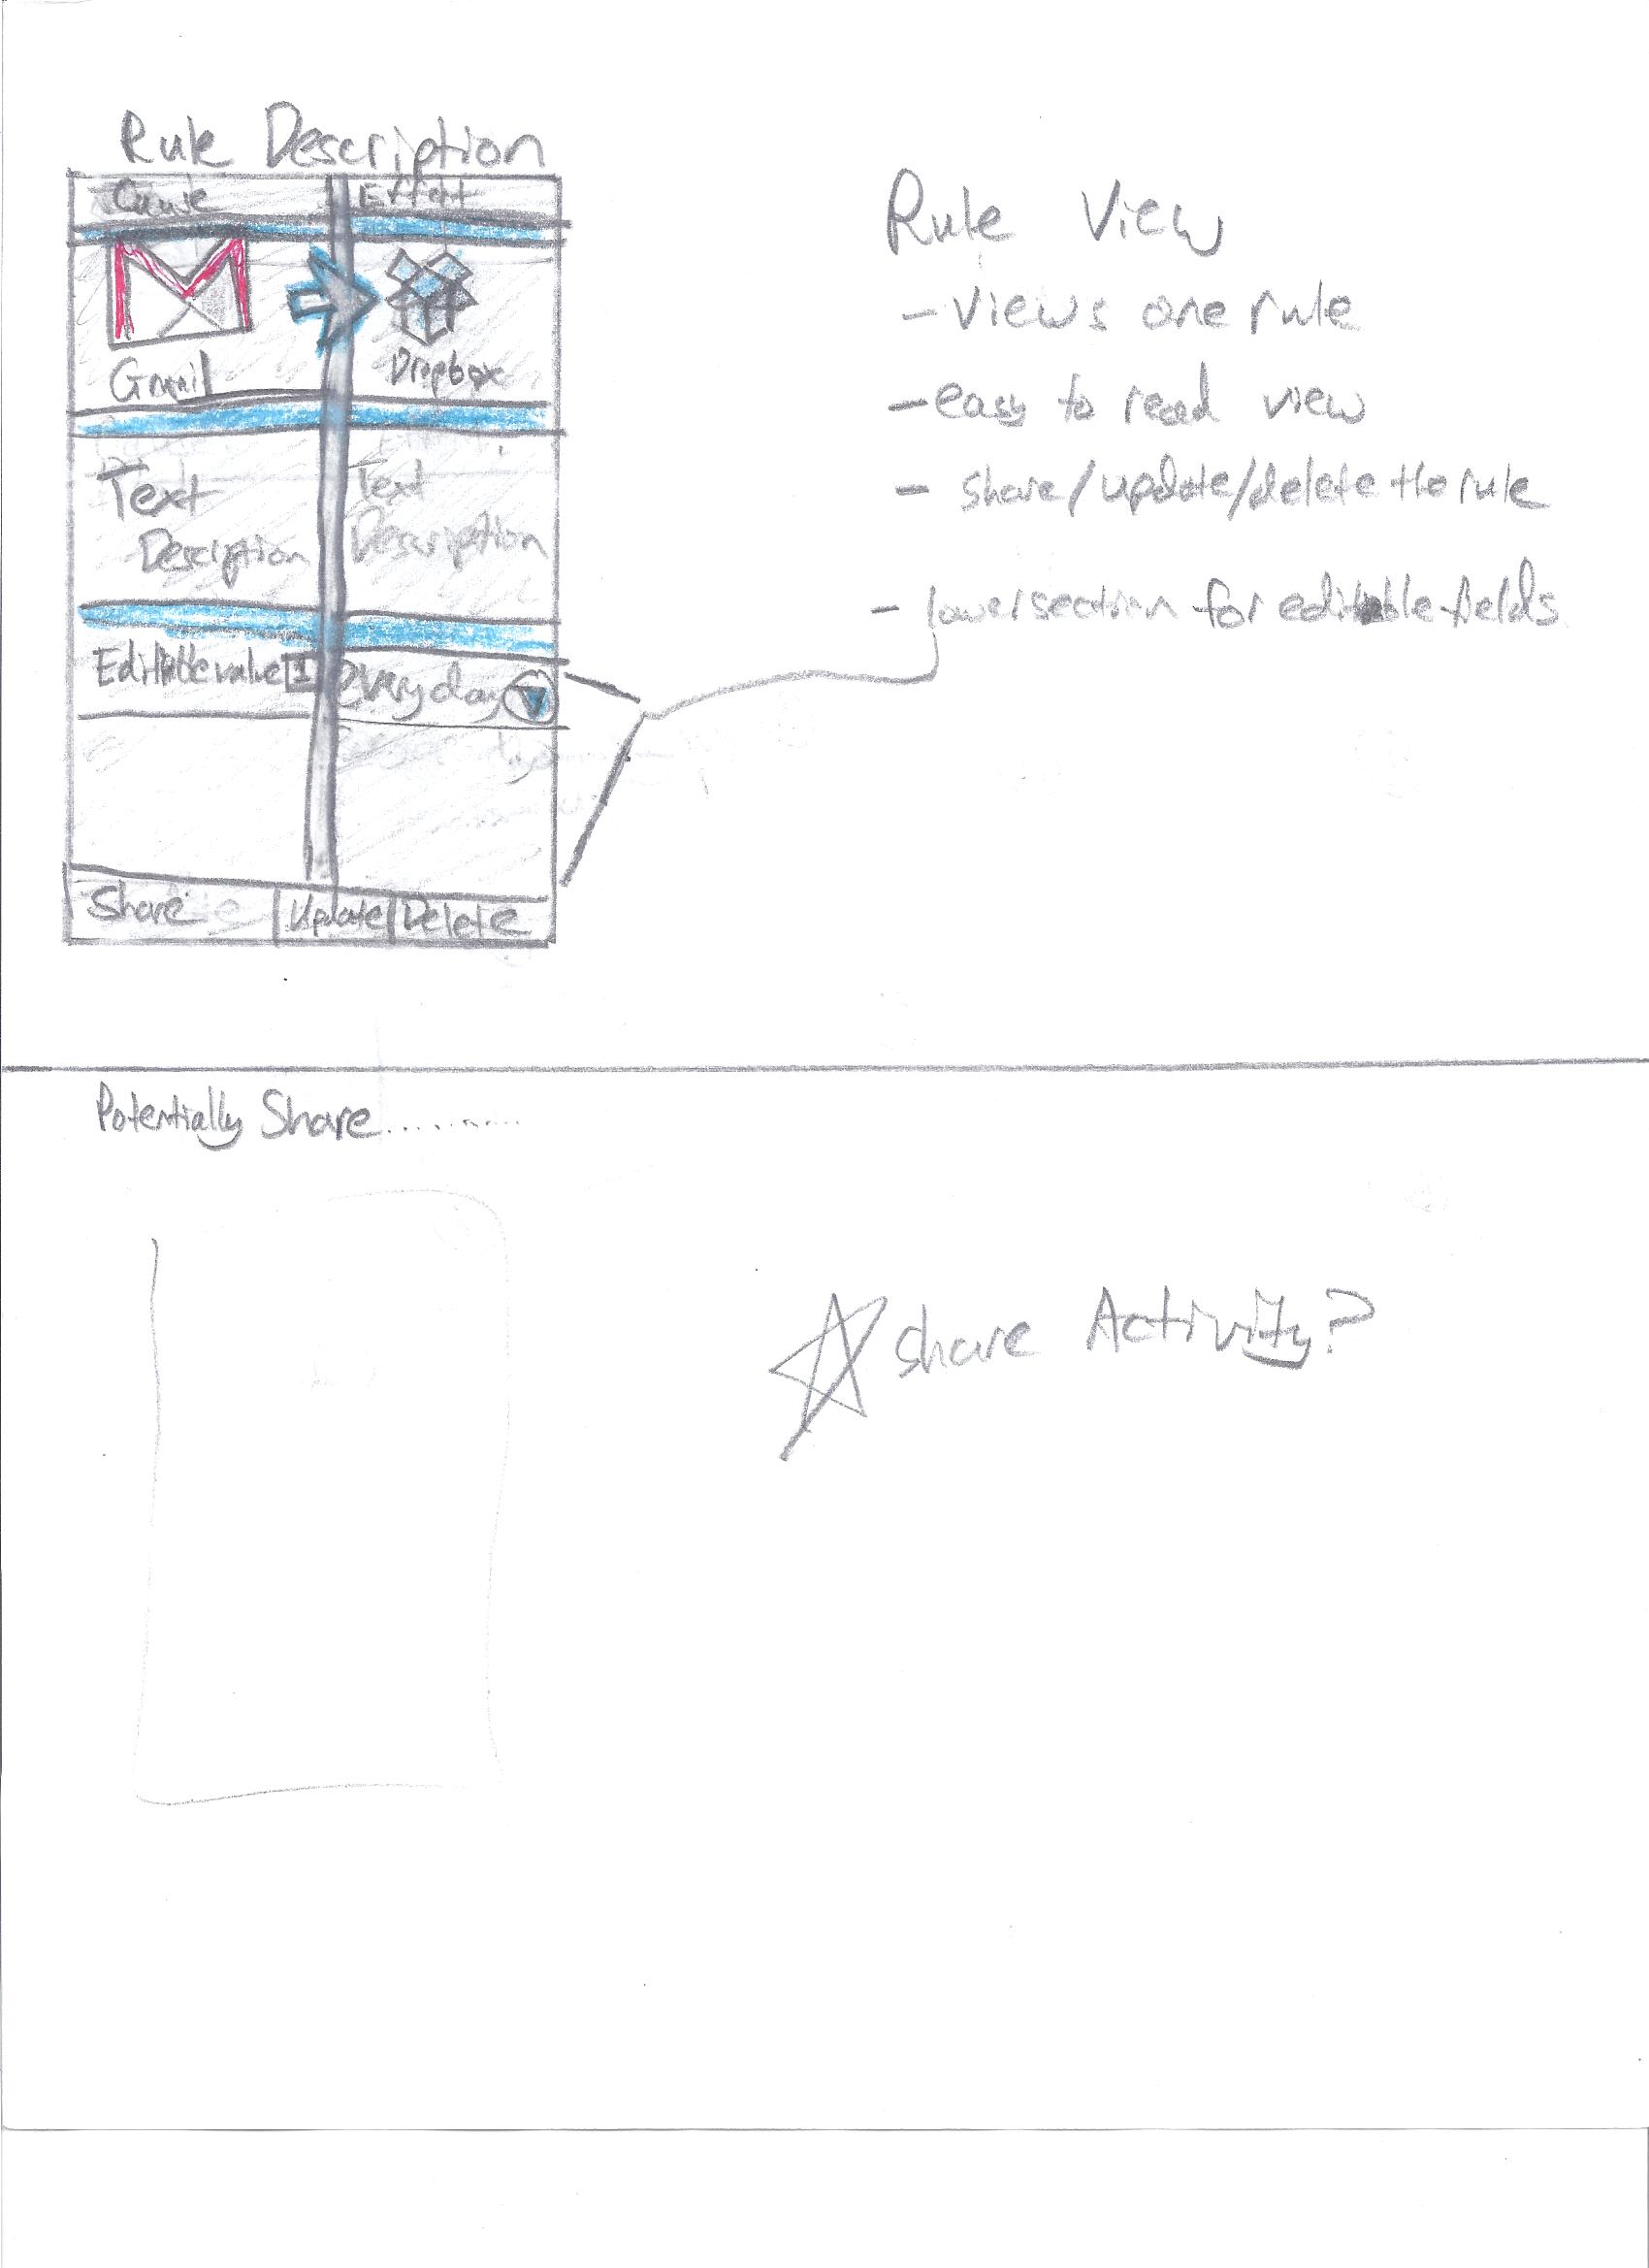 Rule Description
Cause Effect
Gmail Dropbox
Text Description
Text Description
Editable value 1 every day
Share Update Delete
Rule View
- Views one rule
- easy to read view
- share/update/delete the rule
- lower section for editable fields
Potentially Share.........
share Activity?